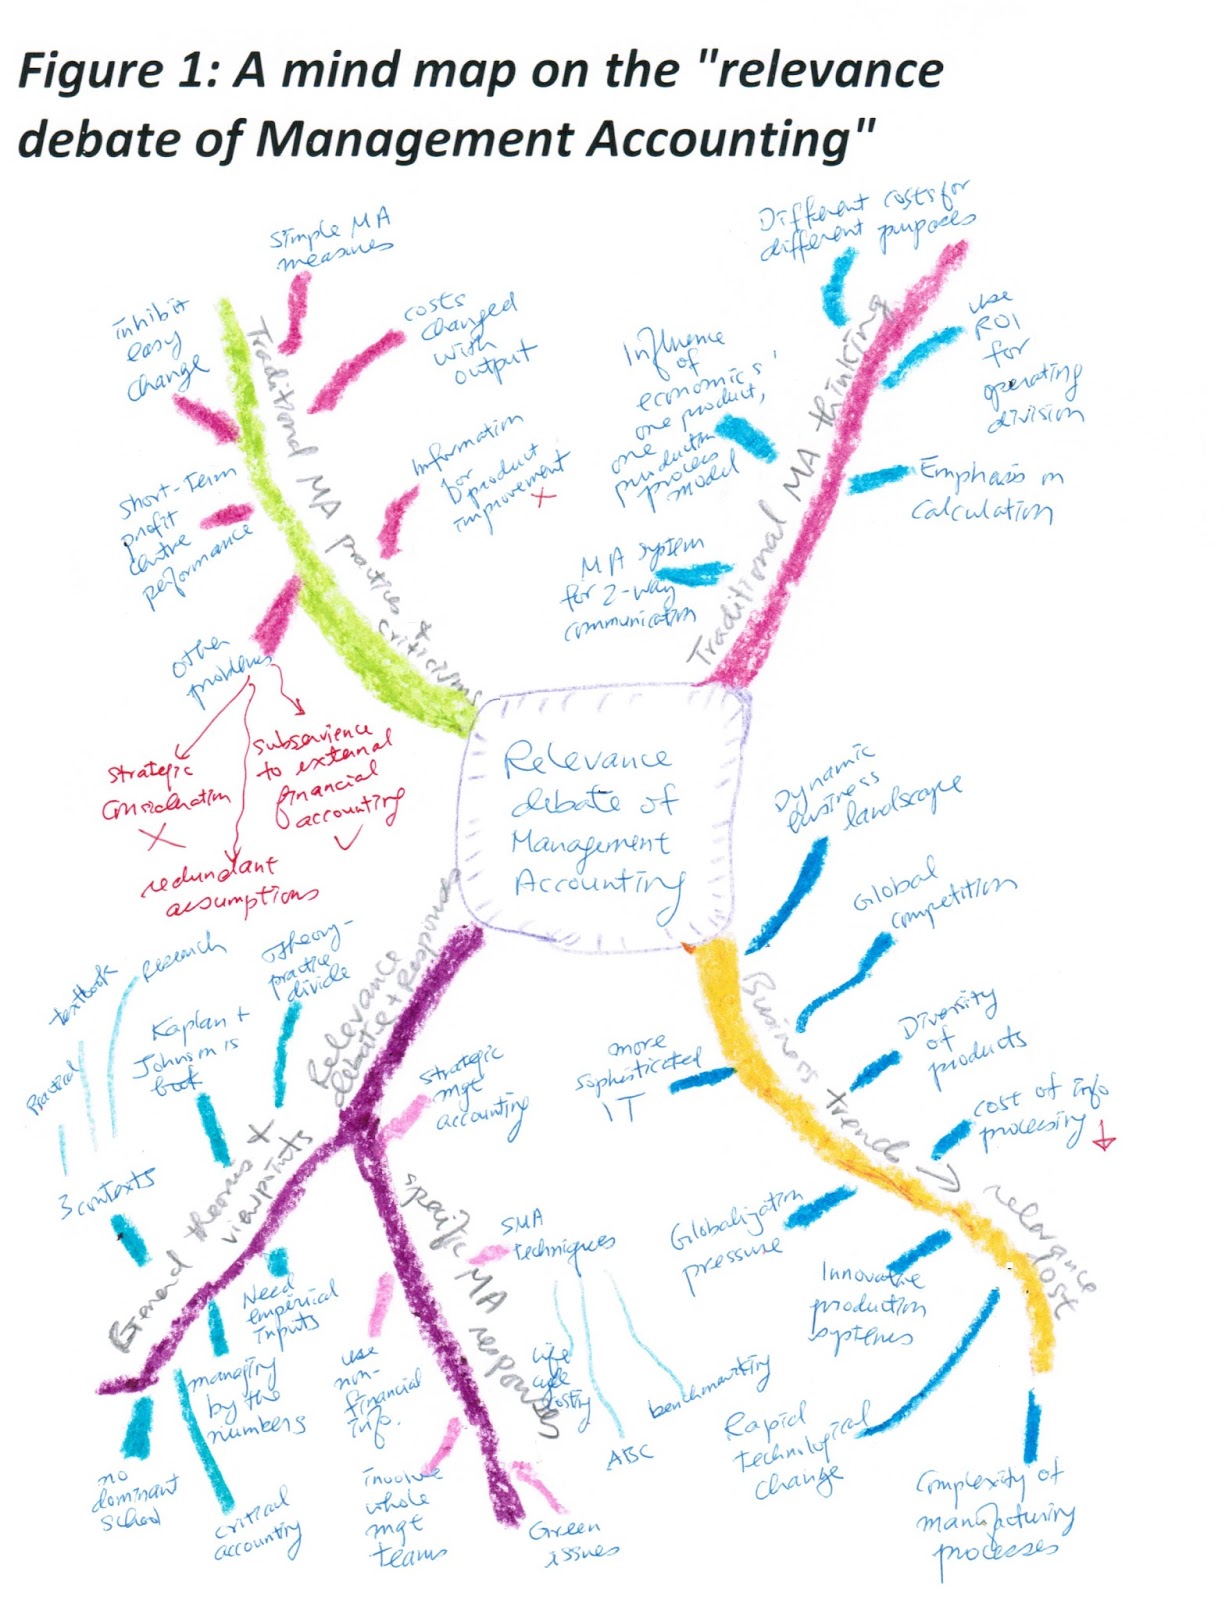 Figure 1: A mind map on the "relevance
debate of Management Accounting"
Simple MA
measures
inhibit
easy
change
Traditional MA practices +
criticisms
costs
changed
with
output
Information
for product
improvement
X
Short-Term
profit
centre
performance
Other
problems
strategic
consideration
X
subservience
to external
financial
accounting
✓
redundant
assumptions
Different costs for
different purposes
Traditional MA thinking
use
ROI
for
operating
division
Influence
of
economics'
one product,
one
production
process
model
Emphasis on
Calculation
MA system
for 2-way
communication
Relevance
debate of
Management
Accounting
Dynamic
business
landscape
Global
competition
Business trends → relevance
lost
Diversity
of
products
more
sophisticated
IT
cost of info
processing ↓
Globalization
pressure
Innovative
production
systems
Rapid
technological
change
Complexity of
manufacturing
processes
Relevance
debate + Responses
Theory-
practice
divide
Research
textbook
Practical
3 contexts
Kaplan +
Johnson's
book
General theories +
viewpoints
Need
empirical
inputs
managing
by the
numbers
no
dominant
school
critical
accounting
Strategic
mgt
accounting
specific MA responses
SMA
techniques
life
cycle
costing
ABC
benchmarking
use
non-
financial
info.
involve
whole
mgt
teams
Green
issues